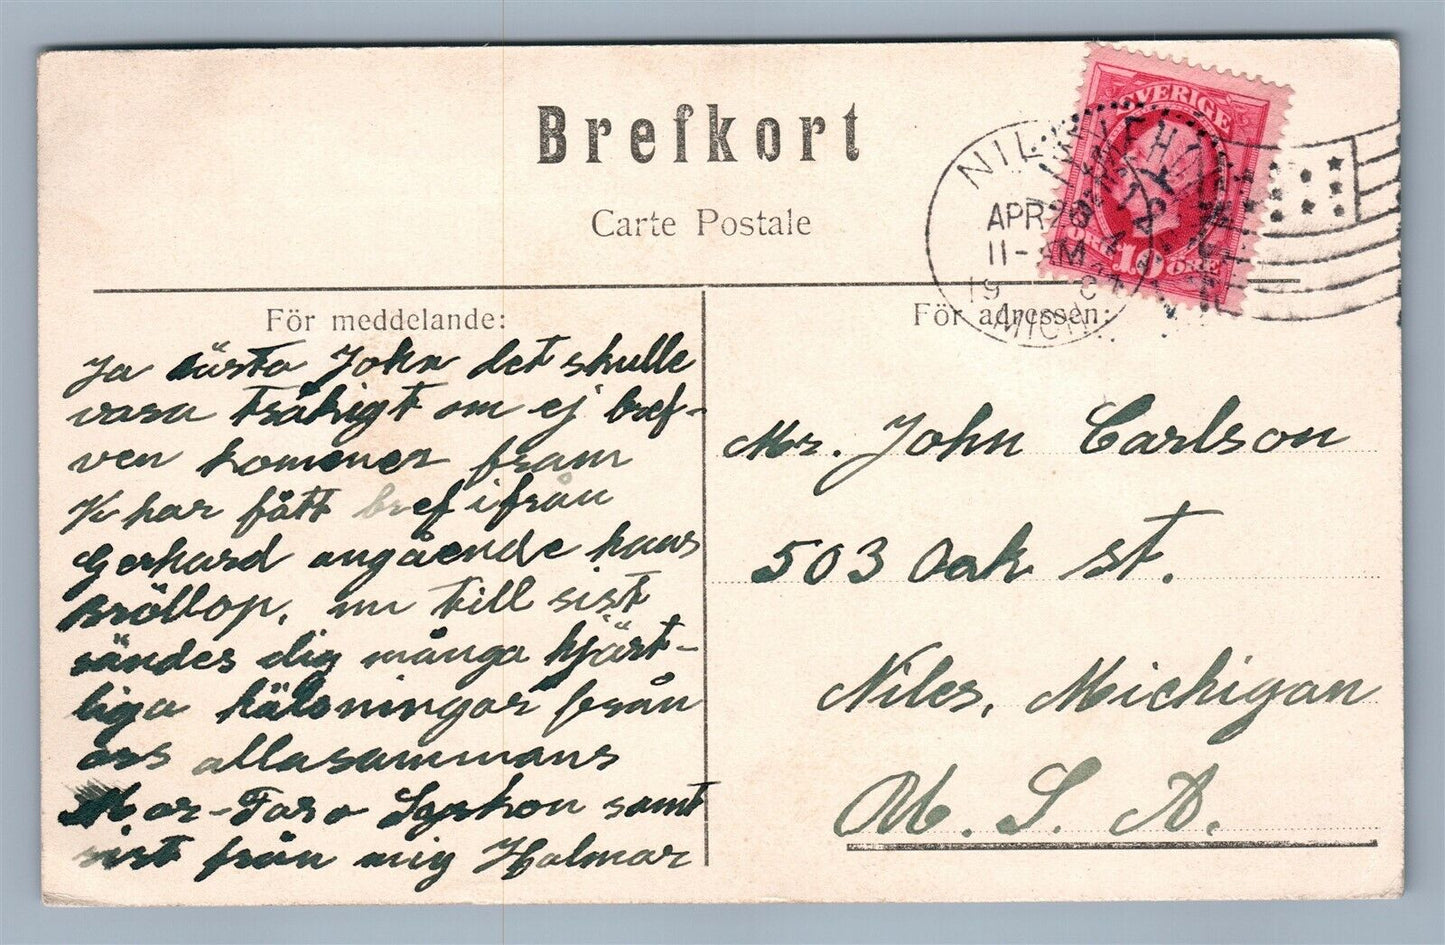 Brefkort
Carte Postale
SVERIGE
10 ÖRE
APR 20
11-AM
19
MICH.
För meddelande:
För adressen:
Ja bästa John det skulle
vara tråkigt om ej bref-
ven kommer fram
Vi har fått bref ifrån
Gerhard angående hans
Bröllop, nu till sist
sändes dig många hjärt-
liga hälsningar från
oss allasammans
Mor-Far o Syskon samt
sist från mig Halmar
Mr. John Carlson
503 Oak st.
Niles, Michigan
U. S. A.